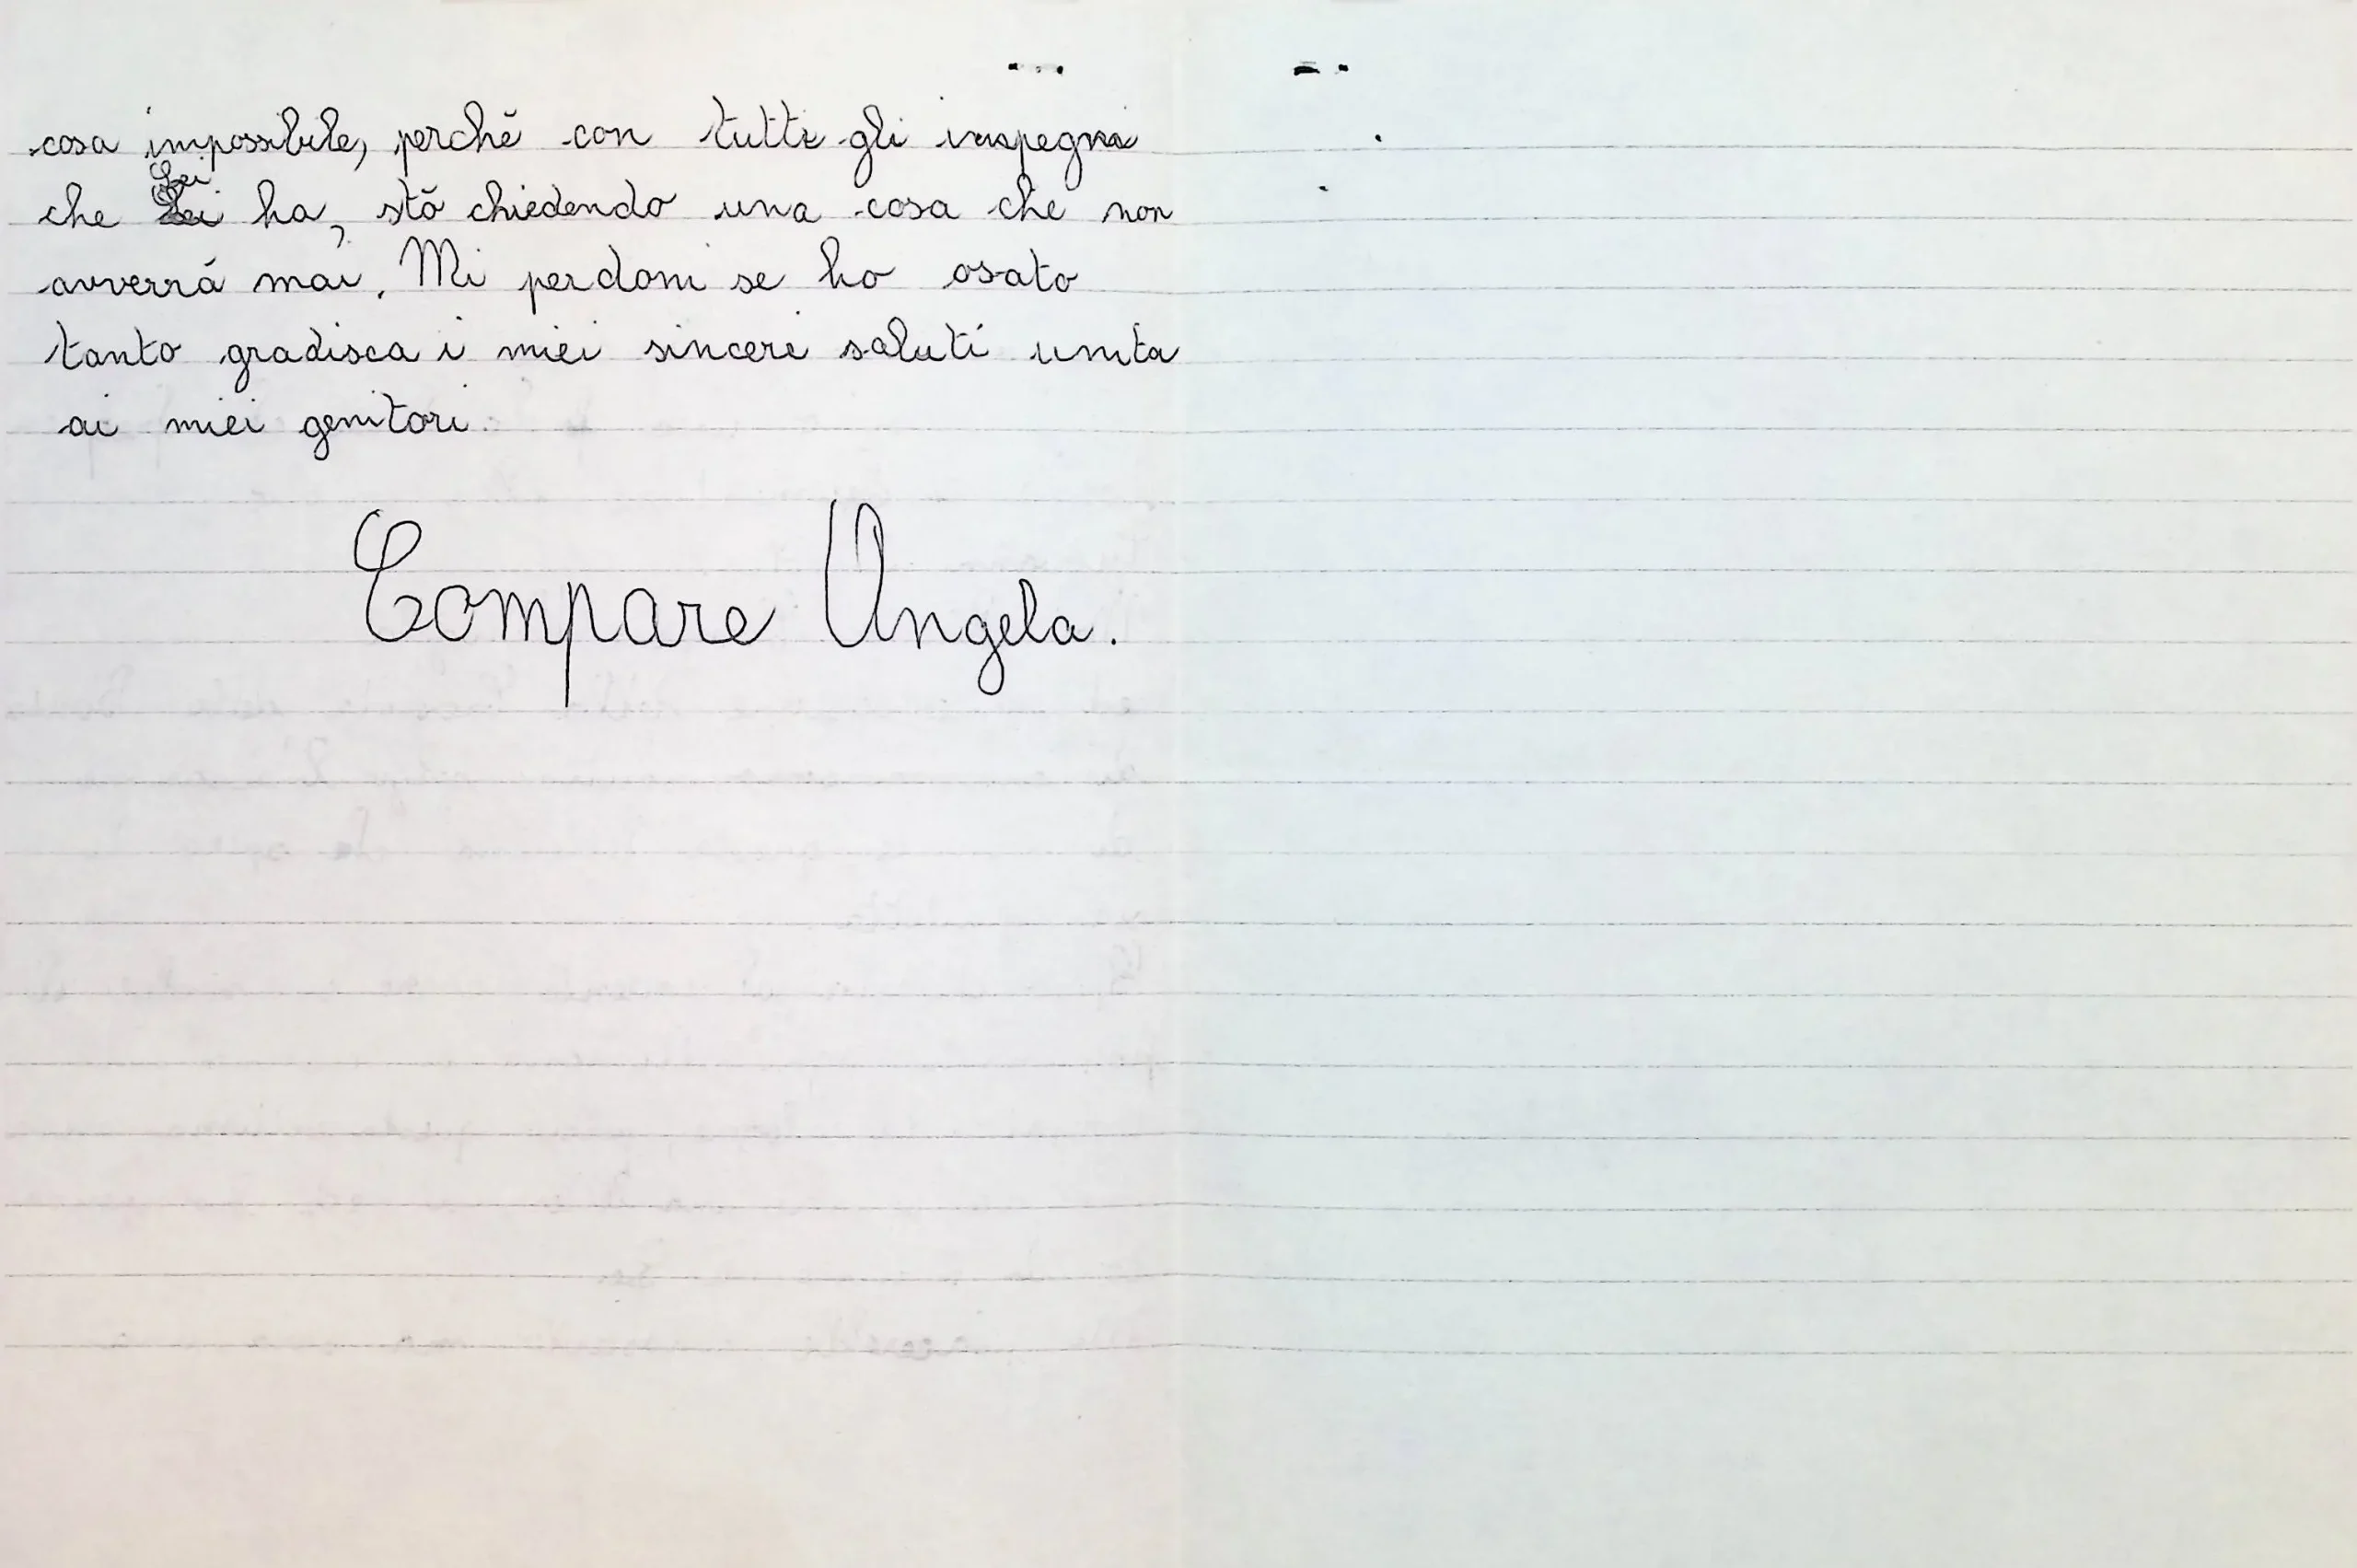 cosa impossibile, perchè con tutti gli impegni
che Lei ha, stò chiedendo una cosa che non
avverrà mai. Mi perdoni se ho osato
tanto gradisca i miei sinceri saluti unita
ai miei genitori.
Compare Angela.